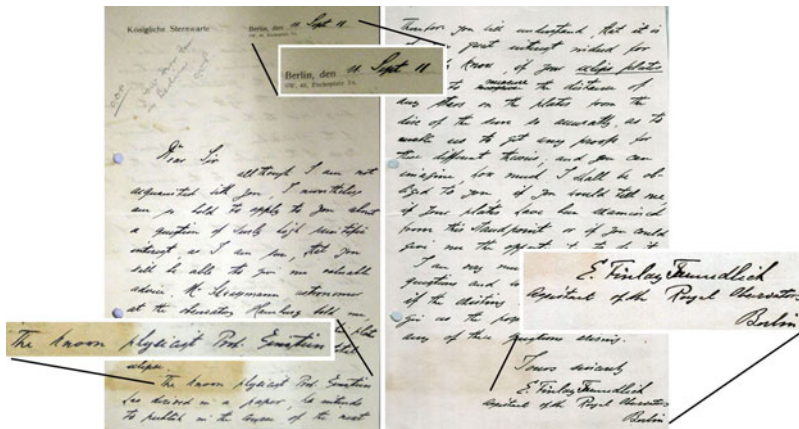 Königliche Sternwarte
Berlin, den 11 Sept 11
SW. 48, Enckeplatz 3A.
Berlin, den 11 Sept 11
SW. 48, Enckeplatz 3A.
Dear Sir
although I am not
acquainted with you, I nevertheless
am so bold to apply to you about
a question of such high scientific
interest, as I am sure, that you
will be able to give me valuable
advice. Mr astronomer
at the observatory Hamburg told me,
plate
The known physicist Prof. Einstein
total
eclipse.
The known physicist Prof. Einstein
has derived in a paper, he intends
to publish in the course of the next
Therefore you will understand, that it is
great interest indeed for
know, if your eclipse plates
to measure the distance of
any stars on the plates from the
disc of the sun so accurately, as to
enable us to get any proofs for
these different theories, and you can
imagine how much I shall be ob-
liged to you if you would tell me
if your plates have been examined
from this standpoint or if you could
give me the to do it
I am very
questions and
if the
give us the
any of these questions arising.
E. Finlay Freundlich
Assistant of the Royal Observatory
Berlin
Yours sincerely
E. Finlay Freundlich
Assistant of the Royal Observatory
Berlin